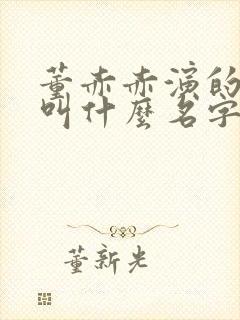 董赤赤演的
叫什麼名字
董新光